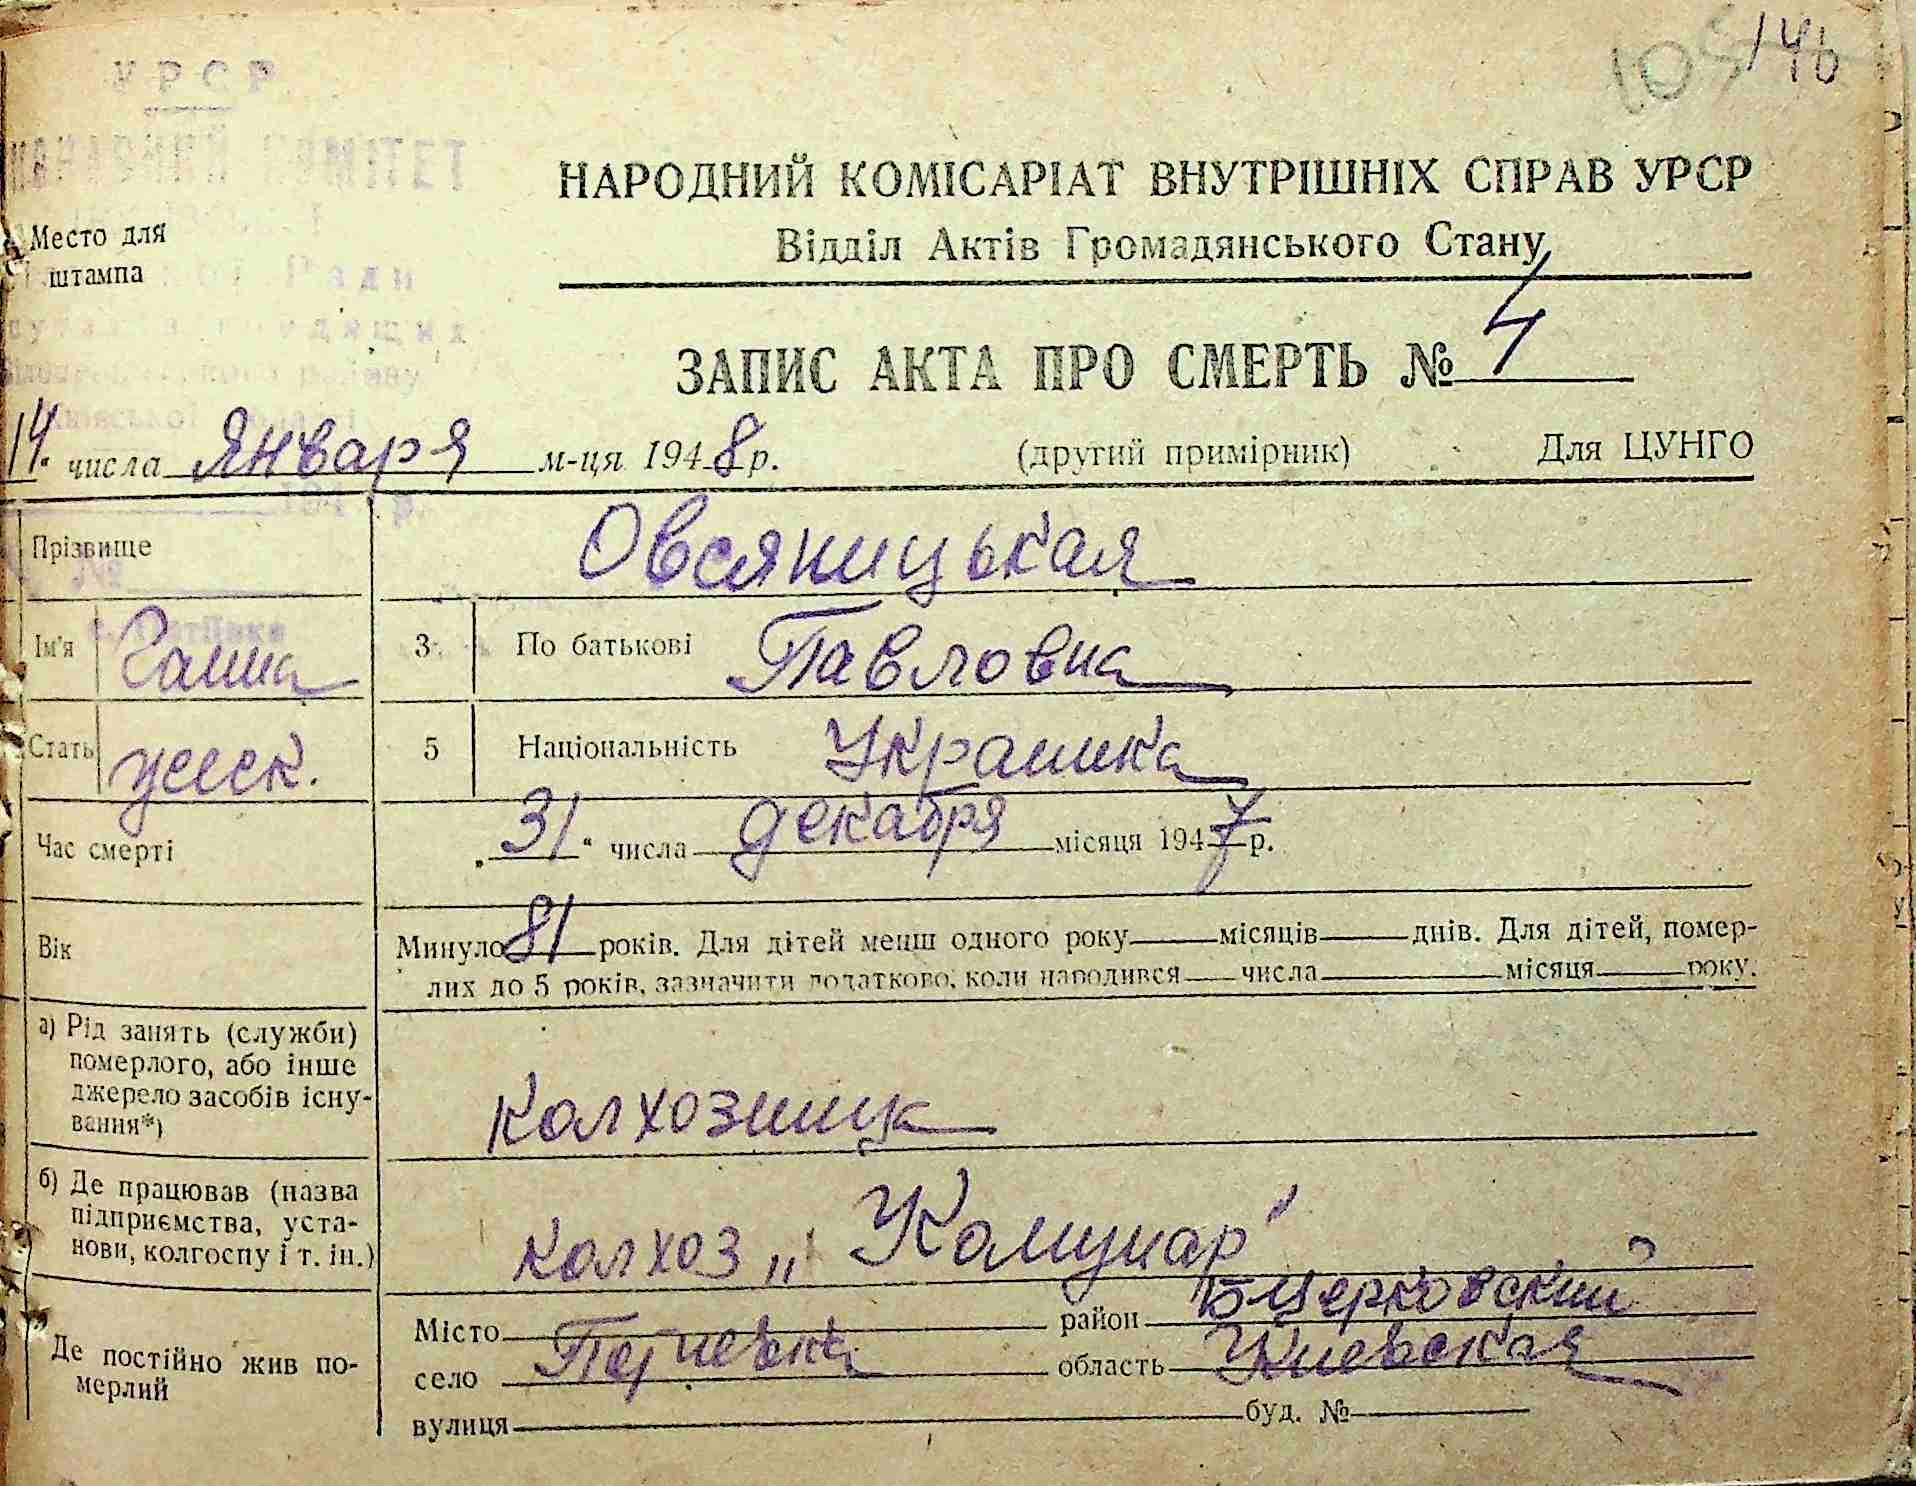 105 146
УРСР
КОМІТЕТ
НАРОДНИЙ КОМІСАРІАТ ВНУТРІШНІХ СПРАВ УРСР
Відділ Актів Громадянського Стану
Место для
штампа
Ради
ЗАПИС АКТА ПРО СМЕРТЬ № 4
14 числа Января м-ця 1948 р. (другий примірник) Для ЦУНГО
Прізвище Овсяницькая
Ім'я Ганна 3 По батькові Павловна
Стать женск. 5 Національність Украинка
Час смерті „31“ числа декабря місяця 1947 р.
Вік Минуло 81 років. Для дітей менш одного року місяців днів. Для дітей, помер-
лих до 5 років, зазначити додатково, коли народився числа місяця року.
а) Рід занять (служби)
померлого, або інше
джерело засобів існу-
вання*)
колхозниця
б) Де працював (назва
підприємства, уста-
нови, колгоспу і т. ін.)
колхоз „Комунар"
Де постійно жив по-
мерлий
Місто район БЦерковский
село область Киевская
вулиця буд. №